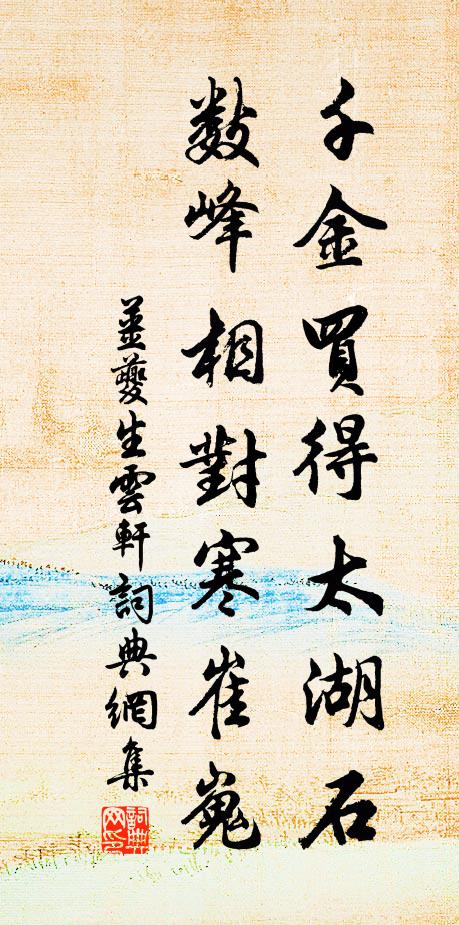 千金買得太湖石
數峰相對寒崔嵬
姜夔生雲軒詞典網集
詞典網印